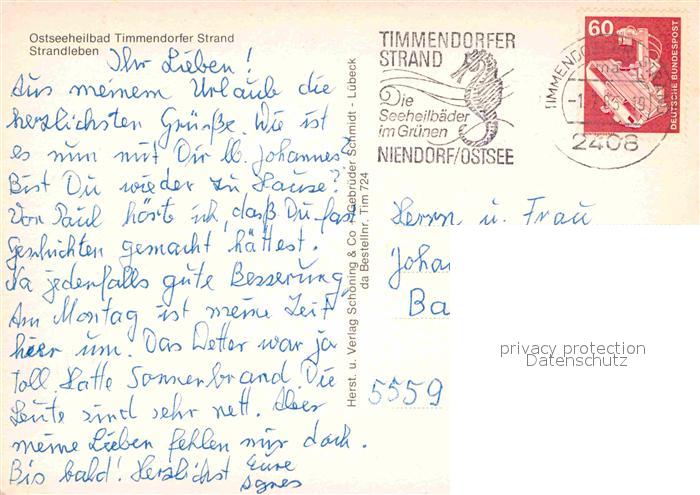 Ostseeheilbad Timmendorfer Strand
Strandleben
Ihr Lieben!
Aus meinem Urlaub die
herzlichsten Grüße. Wie ist
es nun mit Dir lb. Johannes?
Bist Du wieder zu Hause?
Von Paul hörte ich, daß Du fast
Geschichten gemacht hättest.
Na jedenfalls gute Besserung.
Am Montag ist meine Zeit
hier um. Das Wetter war ja
toll. Hatte Sonnenbrand. Die
Leute sind sehr nett. Aber
meine Lieben fehlen mir doch.
Bis bald! Herzlichst Eure
Agnes
Herst. u. Verlag Schöning & Co + Gebrüder Schmidt - Lübeck
da Bestellnr. Tim 724
TIMMENDORFER
STRAND
Die
Seeheilbäder
im Grünen
NIENDORF/OSTSEE
TIMMENDO
2408
60
DEUTSCHE BUNDESPOST
Herrn u. Frau
Joha
Ba
5559
privacy protection
Datenschutz